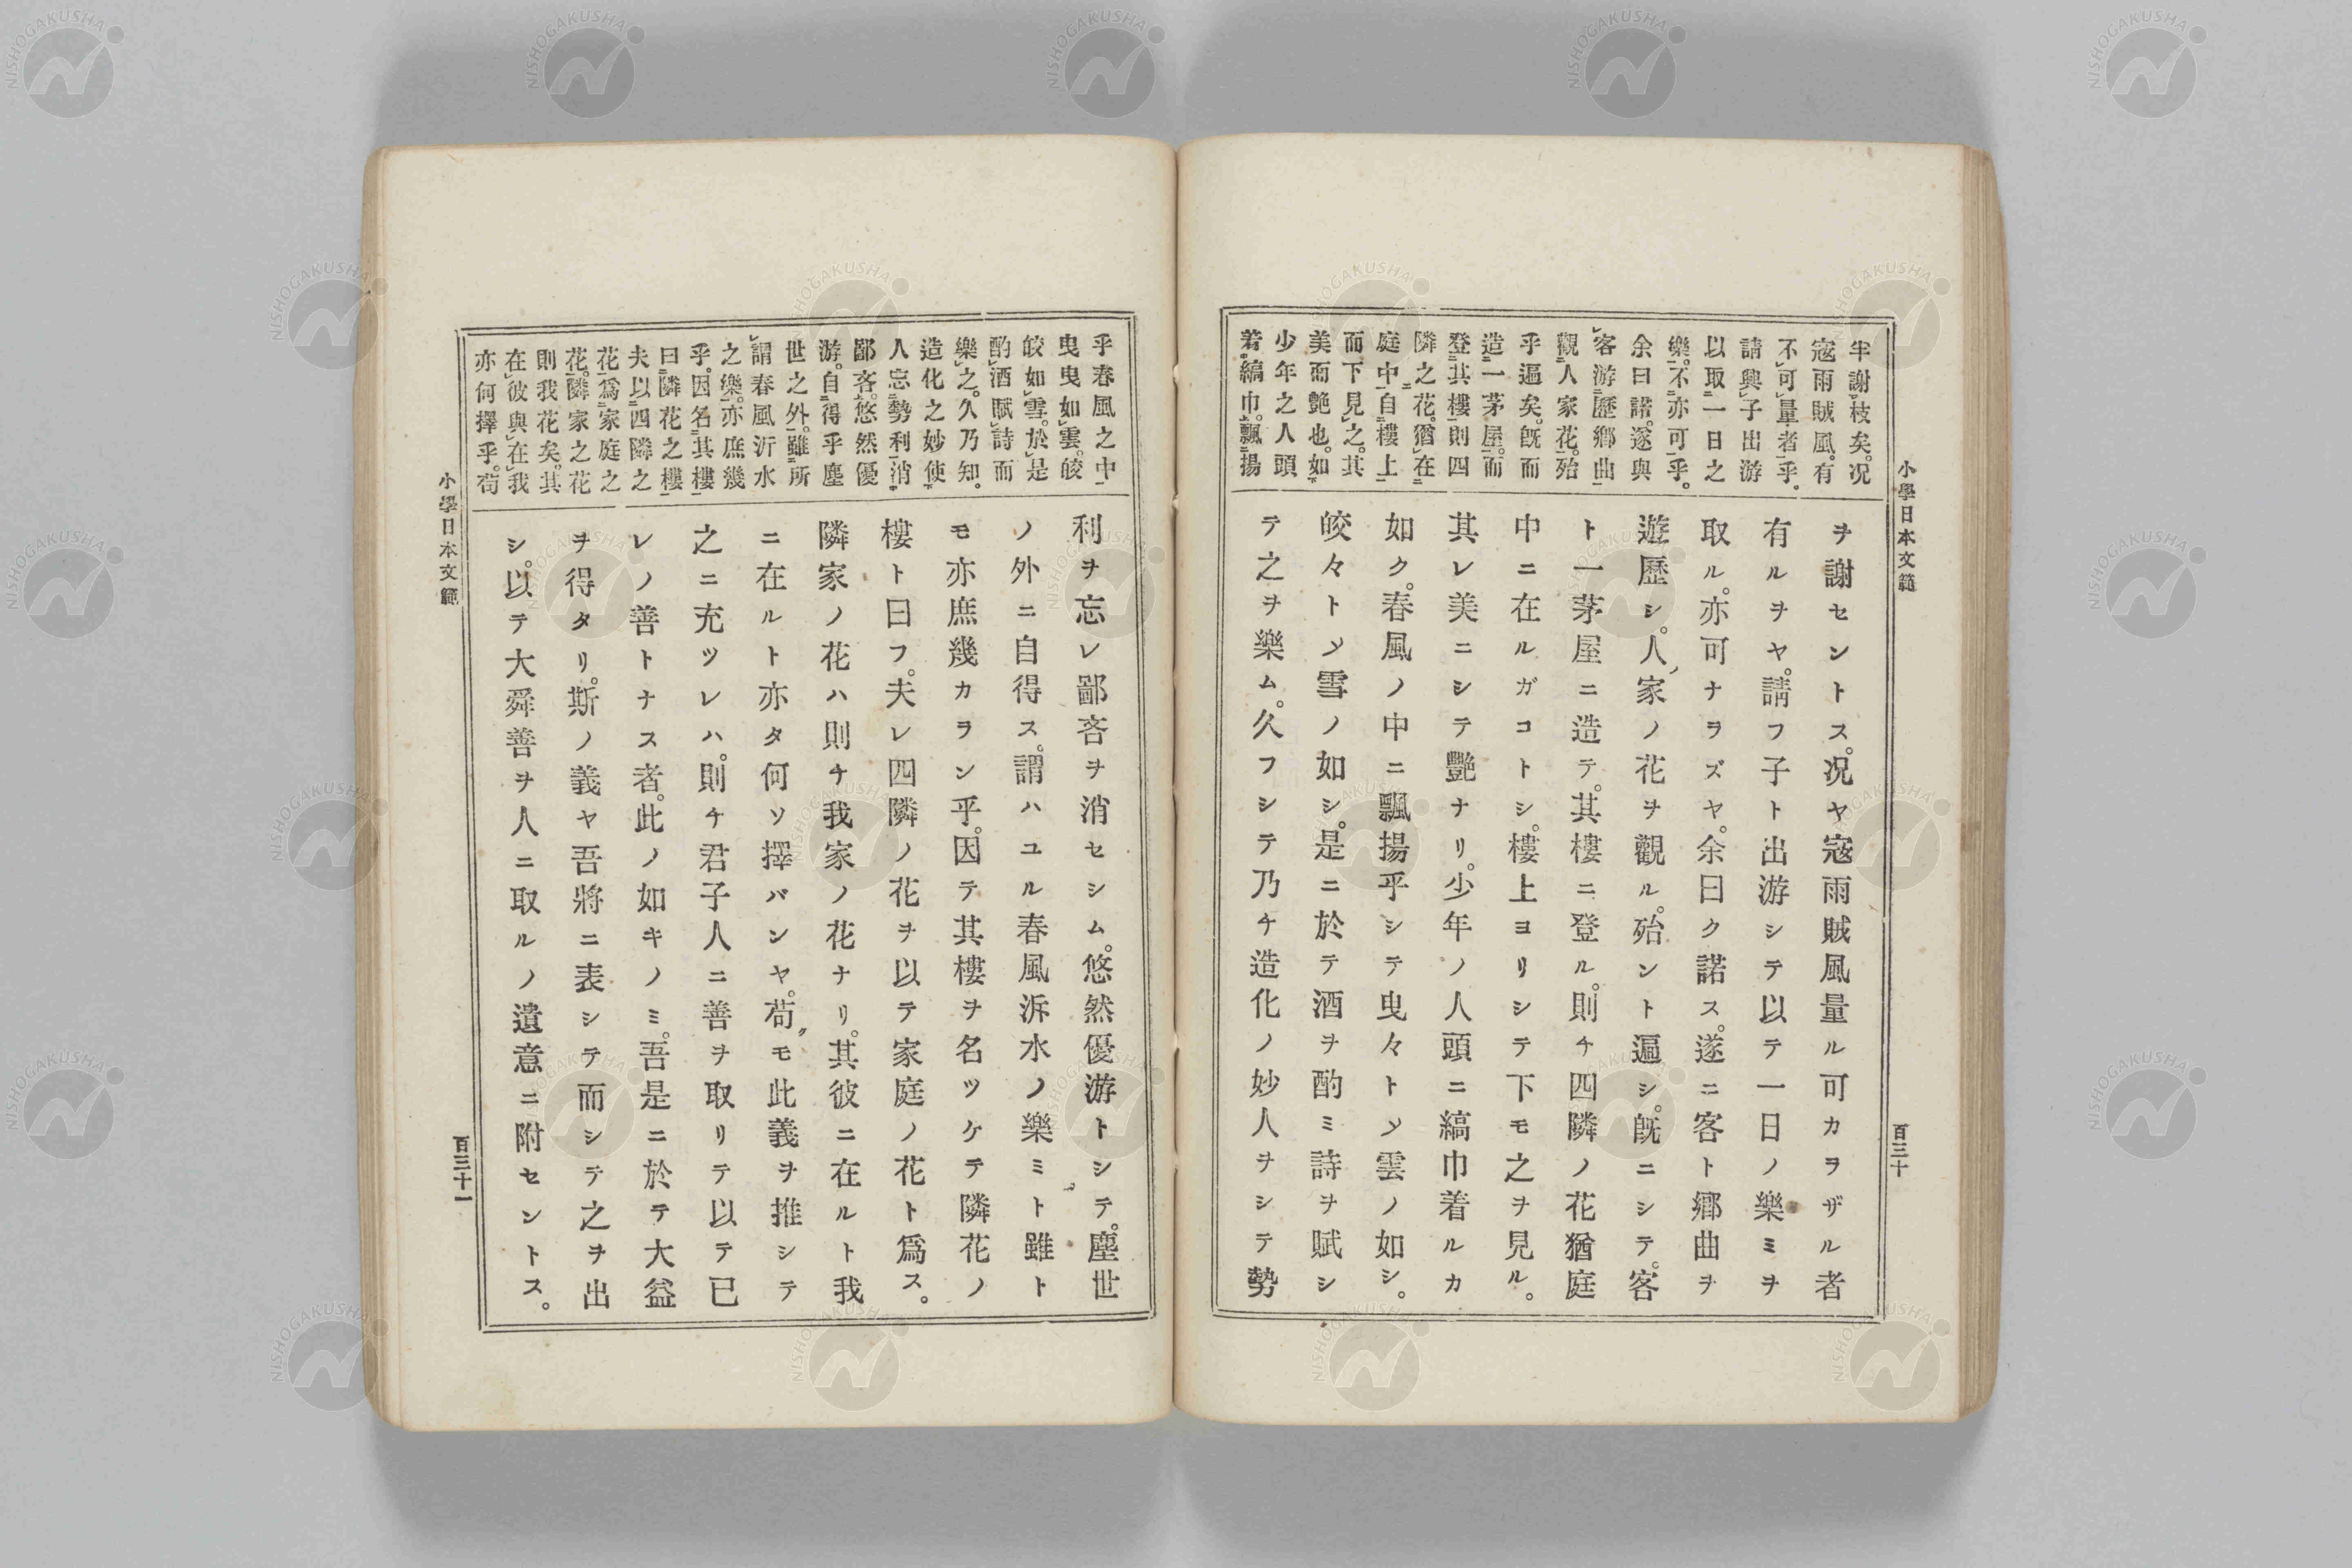 小學日本文範
百三十
半謝枝矣。况
寇雨賊風。有
不可量者乎。
請與子出游
以取一日之
樂。不亦可乎。
余曰諾。遂與
客游歷鄉曲
觀人家花。殆
乎遍矣。既而
造一茅屋。而
登其樓則四
隣之花。猶在
庭中自樓上
而下見之。其
美而艷也。如
少年之人頭
着縞巾。飄揚
ヲ謝セントス。况ヤ寇雨賊風量ル可カヲザル者
有ルヲヤ。請フ子ト出游シテ以テ一日ノ樂ミヲ
取ル。亦可ナヲズヤ。余曰ク諾ス。遂ニ客ト鄉曲ヲ
遊歷シ。人ノ家ノ花ヲ觀ル。殆ント遍シ。既ニシテ。客
ト一茅屋ニ造テ。其樓ニ登ル。則チ四隣ノ花猶庭
中ニ在ルガコトシ。樓上ヨリシテ下モ之ヲ見ル。
其レ美ニシテ艷ナリ。少年ノ人頭ニ縞巾着ルカ
如ク。春風ノ中ニ飄揚乎シテ曳々トメ雲ノ如シ。
皎々トメ雪ノ如シ。是ニ於テ酒ヲ酌ミ詩ヲ賦シ
テ之ヲ樂ム。久フシテ乃チ造化ノ妙人ヲシテ勢
乎春風之中
曳曳如雲。皎
皎如雪。於是
酌酒賦詩而
樂之。久乃知。
造化之妙使
人忘勢利消
鄙吝。悠然優
游。自得乎塵
世之外。雖所
謂春風沂水
之樂。亦庶幾
乎。因名其樓
曰隣花之樓
夫以四隣之
花爲家庭之
花。隣家之花
則我花矣。其
在彼與在我
亦何擇乎。苟
利ヲ忘レ鄙吝ヲ消セシム。悠然優游トシテ。塵世
ノ外ニ自得ス。謂ハユル春風泝水ノ樂ミト雖ト
モ亦庶幾カヲン乎。因テ其樓ヲ名ツケテ隣花ノ
樓ト曰フ。夫レ四隣ノ花ヲ以テ家庭ノ花ト爲ス。
隣家ノ花ハ則チ我家ノ花ナリ。其彼ニ在ルト我
ニ在ルト亦タ何ソ擇バンヤ。苟モ此義ヲ推シテ
之ニ充ツレハ。則チ君子人ニ善ヲ取リテ以テ已
レノ善トナス者。此ノ如キノミ。吾是ニ於テ大益
ヲ得タリ。斯ノ義ヤ吾將ニ表シテ而シテ之ヲ出
シ。以テ大舜善ヲ人ニ取ルノ遺意ニ附セントス。
小學日本文範
百三十一